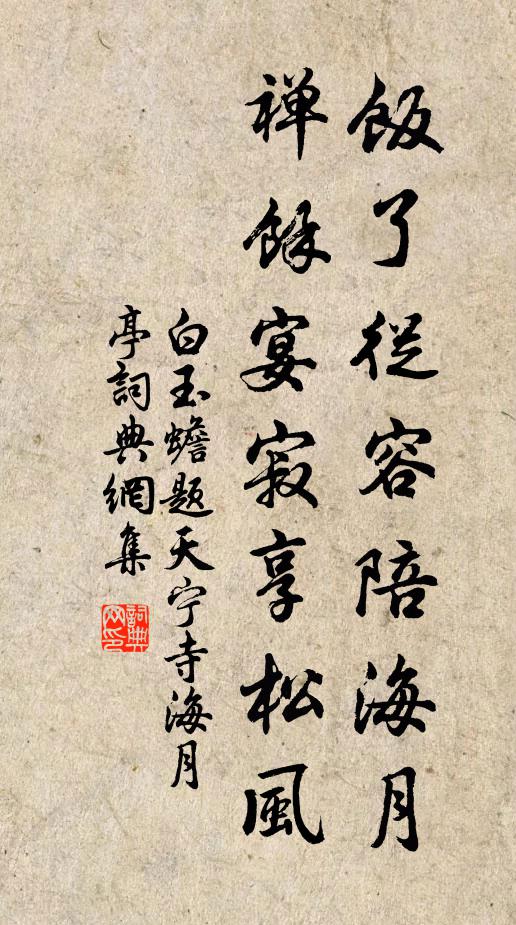 飯了從容陪海月
禪餘宴寂享松風
白玉蟾題天宁寺海月
亭詞典網集
詞典网印